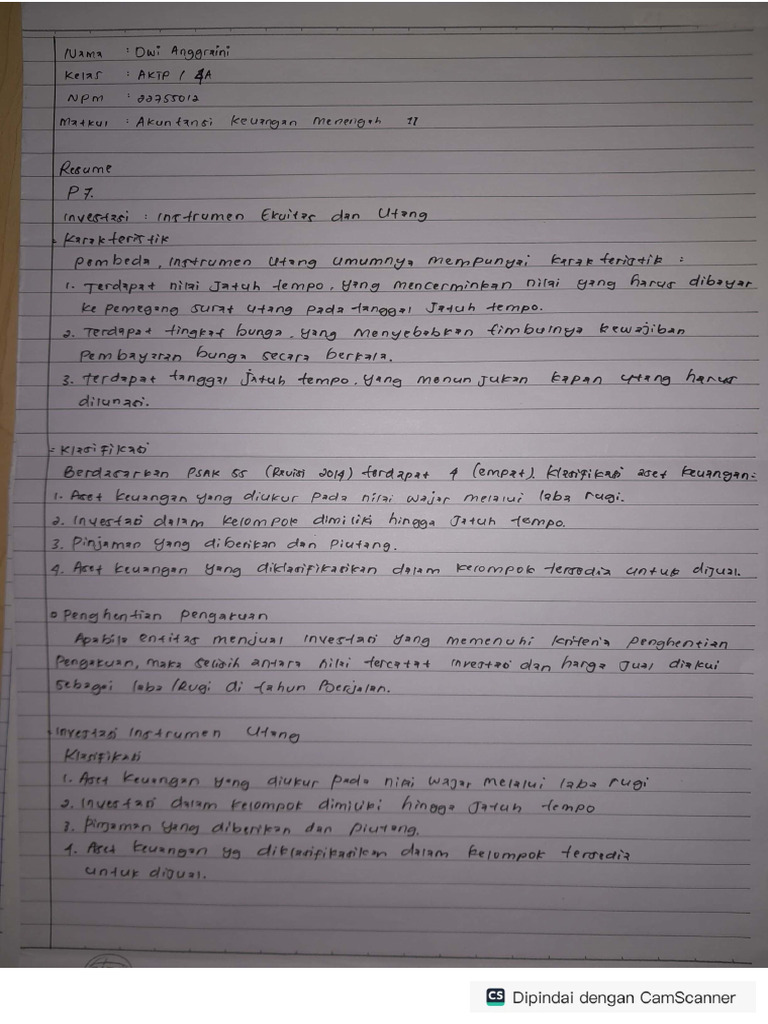 Nama : Dwi Anggraini
Kelas : AKTP / 4A
NPM : 22755012
Matkul : Akuntansi Keuangan Menengah II
Resume
P7.
Investasi : Instrumen Ekuitas dan Utang
- Karakteristik
Pembeda, instrumen utang umumnya mempunyai karakteristik :
1. Terdapat nilai jatuh tempo, yang mencerminkan nilai yang harus dibayar
ke pemegang surat utang pada tanggal jatuh tempo.
2. Terdapat tingkat bunga, yang menyebabkan timbulnya kewajiban
pembayaran bunga secara berkala.
3. terdapat tanggal jatuh tempo, yang menunjukan kapan utang harus
dilunasi.
- Klasifikasi
Berdasarkan PSAK 55 (Revisi 2014) terdapat 4 (empat) klasifikasi aset keuangan:
1. Aset keuangan yang diukur pada nilai wajar melalui laba rugi.
2. Investasi dalam kelompok dimiliki hingga jatuh tempo.
3. Pinjaman yang diberikan dan piutang.
4. Aset keuangan yang diklasifikasikan dalam kelompok tersedia untuk dijual.
o Penghentian pengakuan
Apabila entitas menjual investasi yang memenuhi kriteria penghentian
pengakuan, maka selisih antara nilai tercatat investasi dan harga jual diakui
sebagai laba /Rugi di tahun berjalan.
- Investasi Instrumen Utang
Klasifikasi
1. Aset keuangan yang diukur pada nilai wajar melalui laba rugi
2. Investasi dalam kelompok dimiliki hingga jatuh tempo
3. Pinjaman yang diberikan dan piutang.
4. Aset keuangan yg diklasifikasikan dalam kelompok tersedia
untuk dijual.
CS Dipindai dengan CamScanner